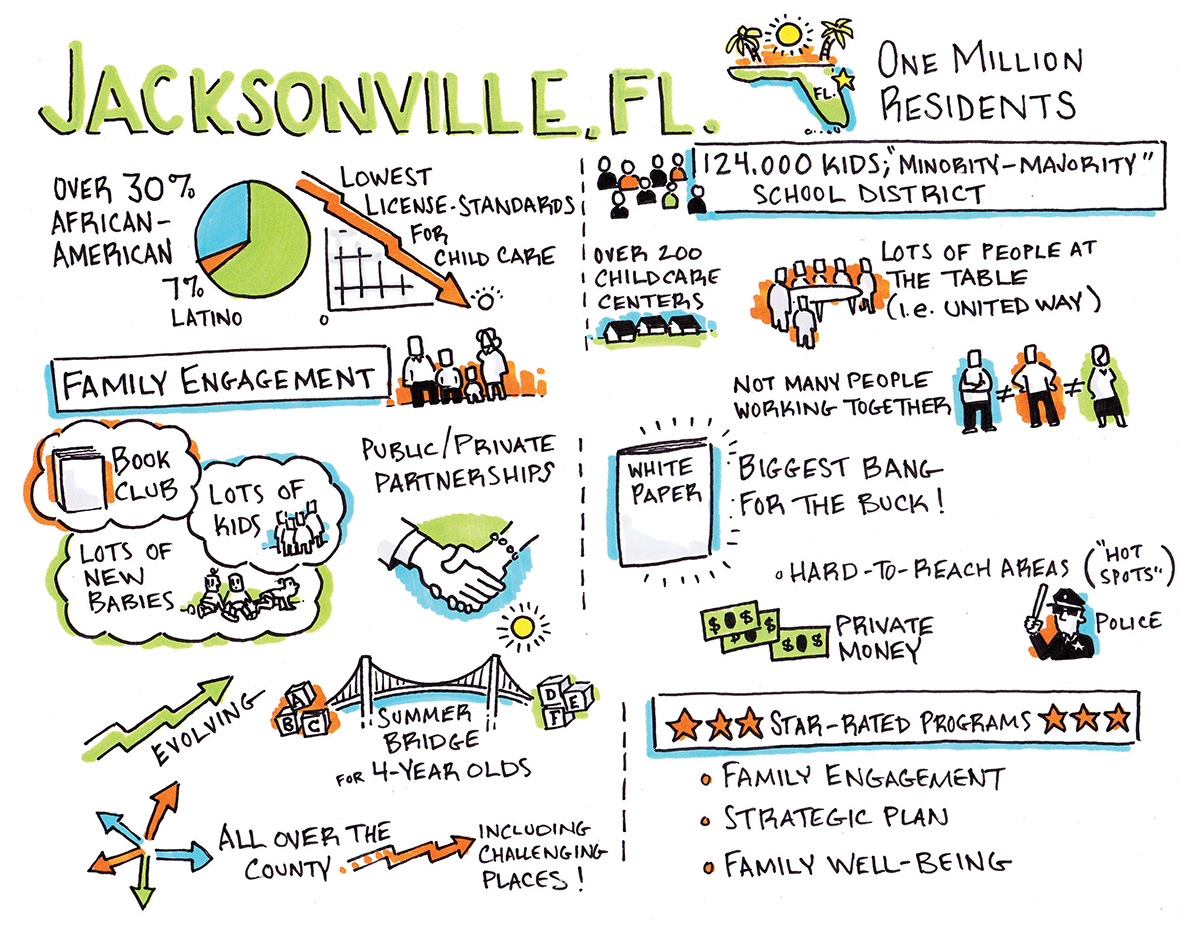 JACKSONVILLE, FL.
FL.
ONE MILLION
RESIDENTS
OVER 30%
AFRICAN-
AMERICAN
7%
LATINO
LOWEST
LICENSE-STANDARDS
FOR
CHILD CARE
0
124.000 KIDS; "MINORITY-MAJORITY"
SCHOOL DISTRICT
OVER 200
CHILDCARE
CENTERS
LOTS OF PEOPLE AT
THE TABLE
(i.e. UNITED WAY)
FAMILY ENGAGEMENT
NOT MANY PEOPLE
WORKING TOGETHER
≠ ≠
BOOK
CLUB
LOTS OF
KIDS
LOTS OF
NEW
BABIES
PUBLIC/PRIVATE
PARTNERSHIPS
WHITE
PAPER
BIGGEST BANG
FOR THE BUCK!
HARD-TO-REACH AREAS ("HOT
SPOTS")
$ $
$
$ $
PRIVATE
MONEY
POLICE
EVOLVING
A
B C
D E
F
SUMMER
BRIDGE
FOR 4-YEAR OLDS
ALL OVER THE
COUNTY
INCLUDING
CHALLENGING
PLACES!
STAR-RATED PROGRAMS
• FAMILY ENGAGEMENT
• STRATEGIC PLAN
• FAMILY WELL-BEING